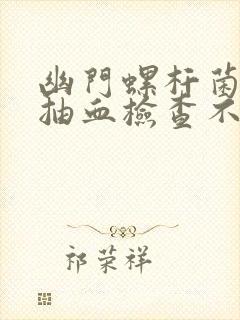 幽門螺杆菌
抽血檢查不
祁荣祥